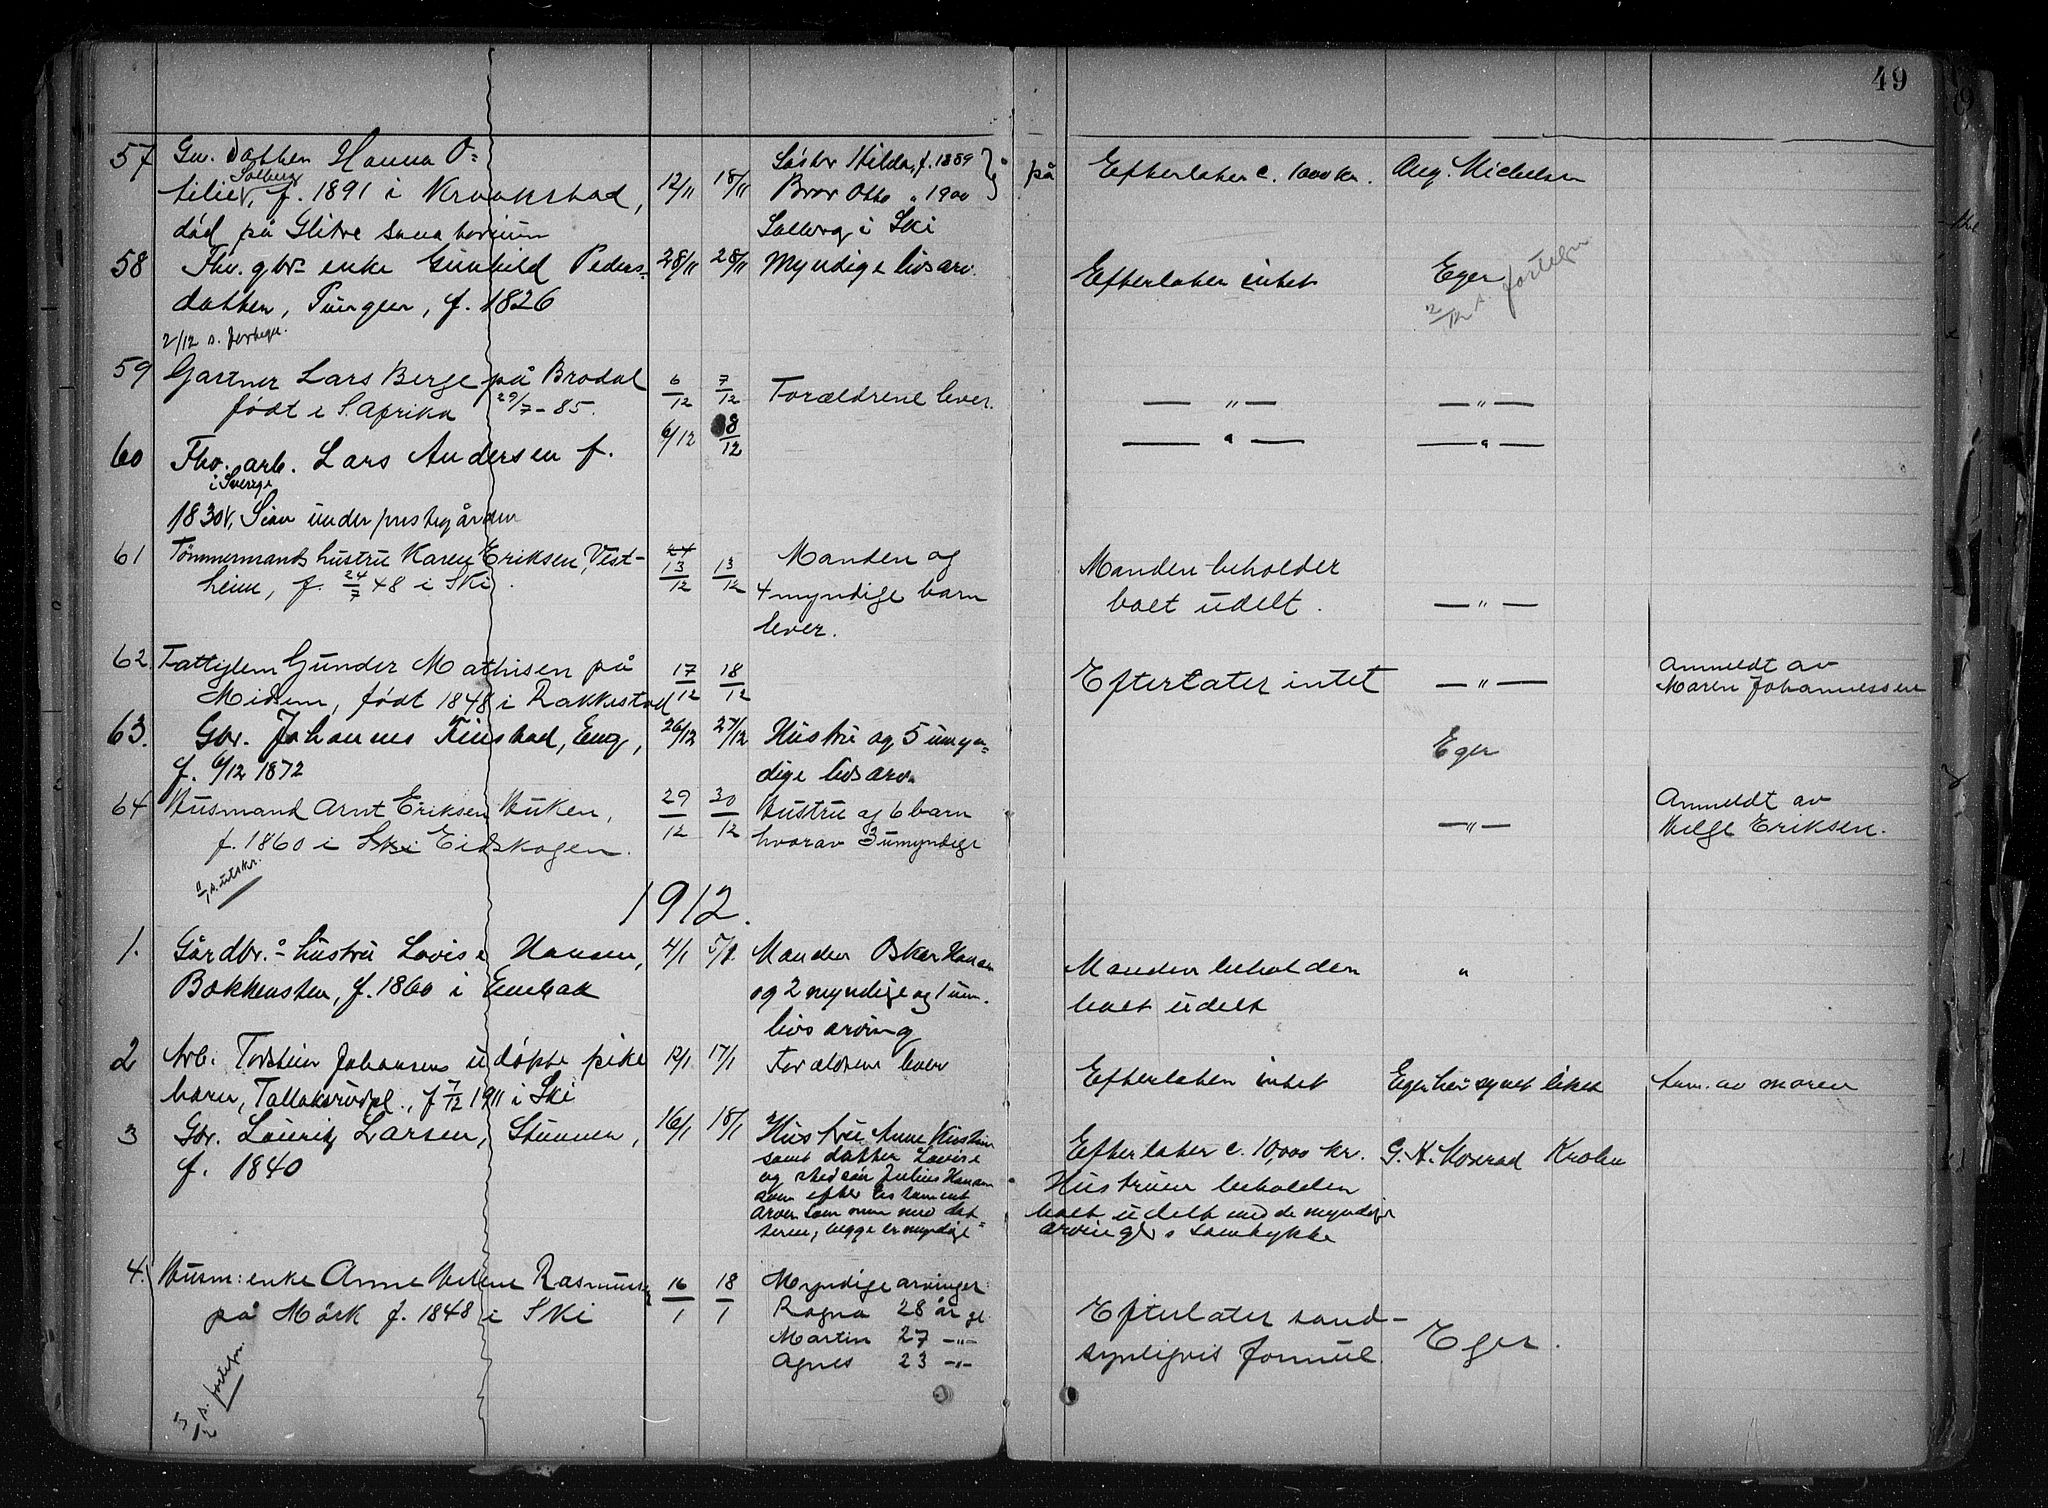 49
57 datter Hanna O=
Solberg
tilie, f. 1891 i Kraakstad,
død på Glitre sanatorium
12/11 18/11
Søster Hilda, f. 1889
Bror Otto " 1900
Solberg i Ski
på
Efterlater c. 1000 kr. Aug. Michelsen
58 Fhv. gbr= enke Gunhild Peders-
datter, f. 1826
28/11 28/11 Myndige livsarv.
Efterlater intet Eger
2/12 s. fortegn
2/12 s. fortegn.
59 Gartner Lars Berge på Brodal
født i S. Afrika 29/7-85.
6/12 7/12 Forældrene lever.
— " — — " —
60 Fhv. arb. Lars Andersen f.
i Sverige
1830, under prestegården
6/12 8/12
— " — — " —
61 Tømmermands hustru Karen Eriksen, Vest-
heim, f. 24/7 48 i Ski.
13/12 13/12
Manden og
4 myndige barn
lever.
Manden beholder
boet udelt. — " —
62. Fattiglem Gunder Mathisen på
Midsem, født 1848 i Rakkestad
17/12 18/12
Efterlater intet — " —
Anmeldt av
Maren Johannessen
63. Gbr. Johannes Finstad, Eng,
f. 6/12 1872
26/12 27/12 Hustru og 5 umyn=
dige livsarv.
Eger
64 Husmand Arnt Eriksen Huken,
f. 1860 i Ski Eidskogen.
29/12 30/12 Hustru og 6 barn
hvorav 3 umyndige
— " —
Anmeldt av
Helge Eriksen.
11/1 s. utskr.
1912.
1. Gårdbr.- hustru Lovise Hansen,
Bakkensten, f. 1860 i Enebak
4/1 5/1. Manden Oskar Hansen
og 2 myndige og 1 um.
livsarving
Manden beholder
boet udelt
"
2 Arb. Torstein Johansens udøpte pike
barn, Tallaksrudpl., f 7/12 1911 i Ski
12/1 17/1 Forældrene lever
Efterlater intet Eger har synet liket Anm. av moren
3 Gbr. Lauritz Larsen, Stunner,
f. 1840
16/1 18/1 Hustru Anne Kristine
samt datter Lovise
og stedsøn Julius Hansen
som efter testament
arver
begge er myndige"
Efterlater c. 10,000 kr. G. A. Moserad
Hustruen beholder
boet udelt med de myndige
arvingers samtykke
4. Husm: enke Anne Helene Rasmussen
på Mörk f. 1848 i Ski
16/1 18/1
Myndige arvinger:
Ragna 28 år gl.
Martin 27 —"—
Agnes 23 —"—
Efterlater sand-
synligvis formue.
Eger.
5/2 s. fortegn.